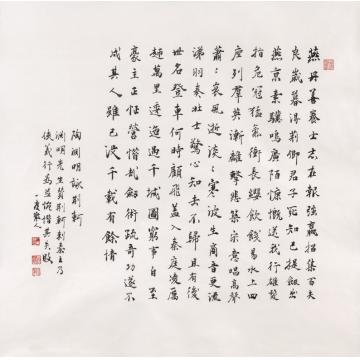 燕丹善養士志在報強嬴招集百夫
良歲暮得荊卿君子死知己提劍出
燕京素驥鳴廣陌慷慨送我行雄髮
指危冠猛氣衝長纓飲餞易水上四
座列群英漸離擊悲築宋意唱高聲
蕭々哀風逝淡々寒波生商音更流
涕羽奏壯士驚心知去不歸且有後
世名登車何時顧飛蓋入秦庭凌厲
越萬里逶迤過千城圖窮事自至
豪主正怔營惜哉劍術疏奇功遂不
成其人雖已沒千載有餘情
陶淵明詠荊軻
淵明先生贊荊軻刺秦王乃
俠義行為並惋惜其失敗